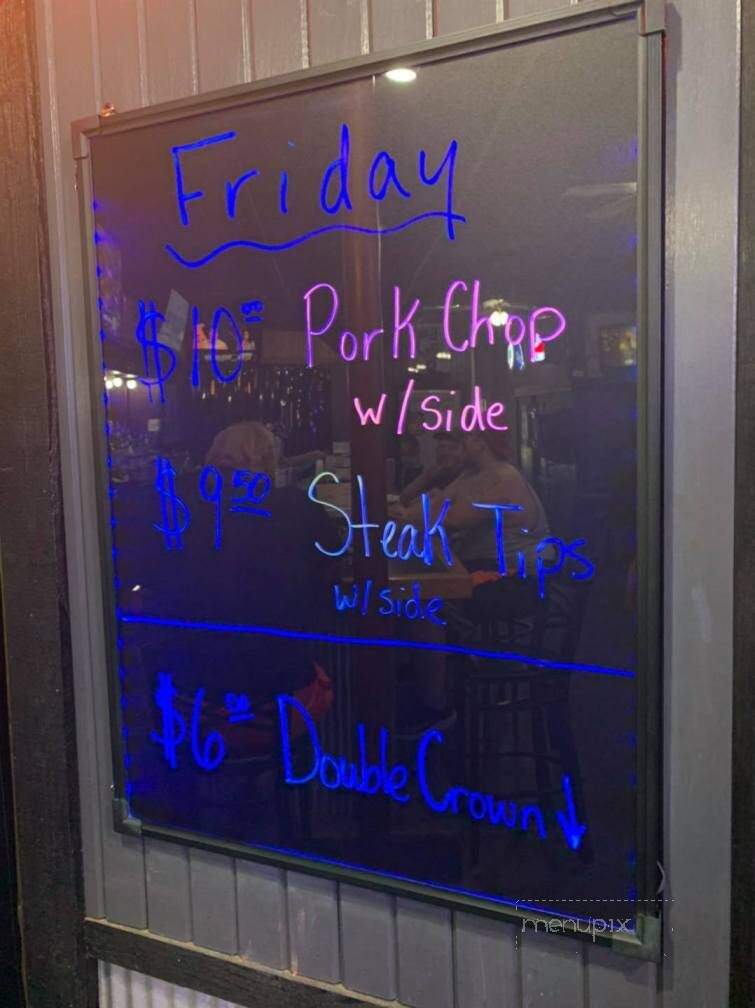 Friday
$10.00 Pork Chop
w/side
$9.50 Steak Tips
w/side
$6.00 Double Crown ↓
menupix